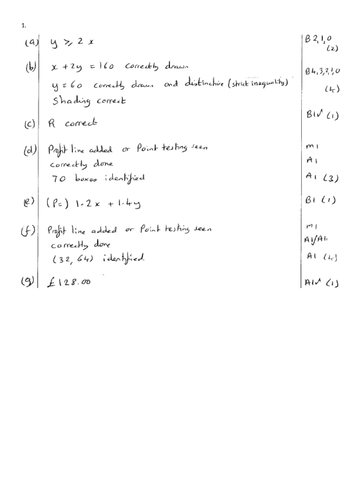 1.
(a) y ⩾ 2x B2,1,0 (2)
(b) x + 2y = 160 correctly drawn B4,3,2,1,0
y = 60 correctly drawn and distinctive (strict inequality) (4)
Shading correct
(c) R correct B1√ (1)
(d) Profit line added or Point testing seen M1
correctly done A1
70 boxes identified A1 (3)
(e) (P=) 1.2x + 1.4y B1 (1)
(f) Profit line added or Point testing seen M1
correctly done A1/A1
(32, 64) identified A1 (4)
(g) £128.00 A1√ (1)